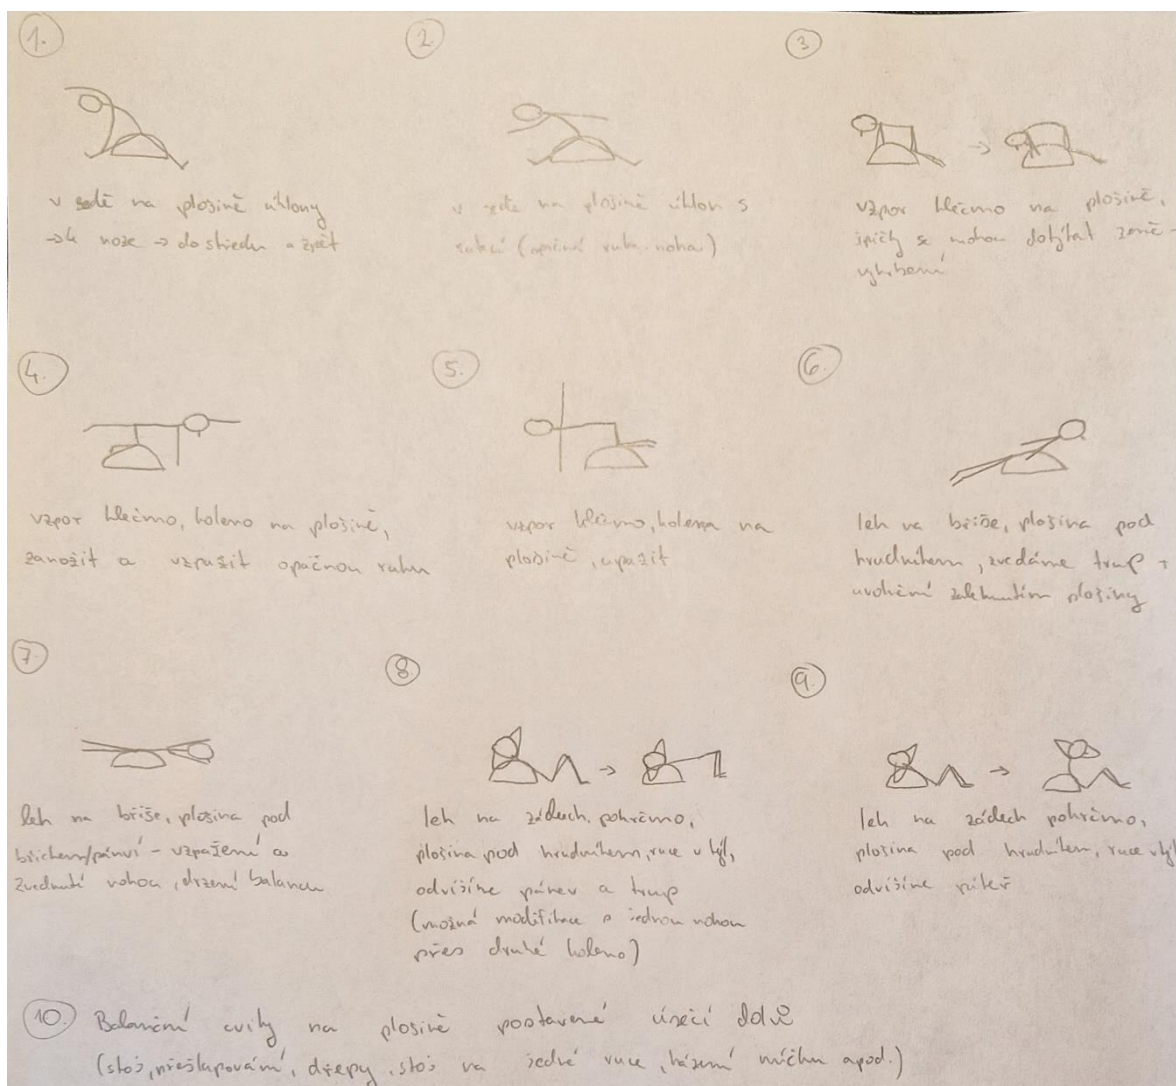 1.
v sedě na plošině úklony
→ k noze → do středu a zpět
2.
v sedě na plošině úklon s
rotací (opačná ruka-noha)
3.
vzpor klečmo na plošině,
špičky se mohou dotýkat země -
vyhrbení
4.
vzpor klečmo, koleno na plošině,
zanožit a vzpažit opačnou ruku
5.
vzpor klečmo, kolena na
plošině, upažit
6.
leh na břiše, plošina pod
hrudníkem, zvedáme trup +
uvolnění zaklonutím plošiny
7.
leh na břiše, plošina pod
břichem/pánví - vzpažení a
zvednutí nohou, držení balancu
8.
leh na zádech, pokrčmo,
plošina pod hrudníkem, ruce v týl,
odvíjíme pánev a trup
(možná modifikace s jednou nohou
přes druhé koleno)
9.
leh na zádech pokrčmo,
plošina pod hrudníkem, ruce v týl
odvíjíme páteř
10. Balanční cviky na plošině postavené úsečí dolů
(stoj, přešlapování, dřepy, stoj na jedné ruce, házení míčku apod.)